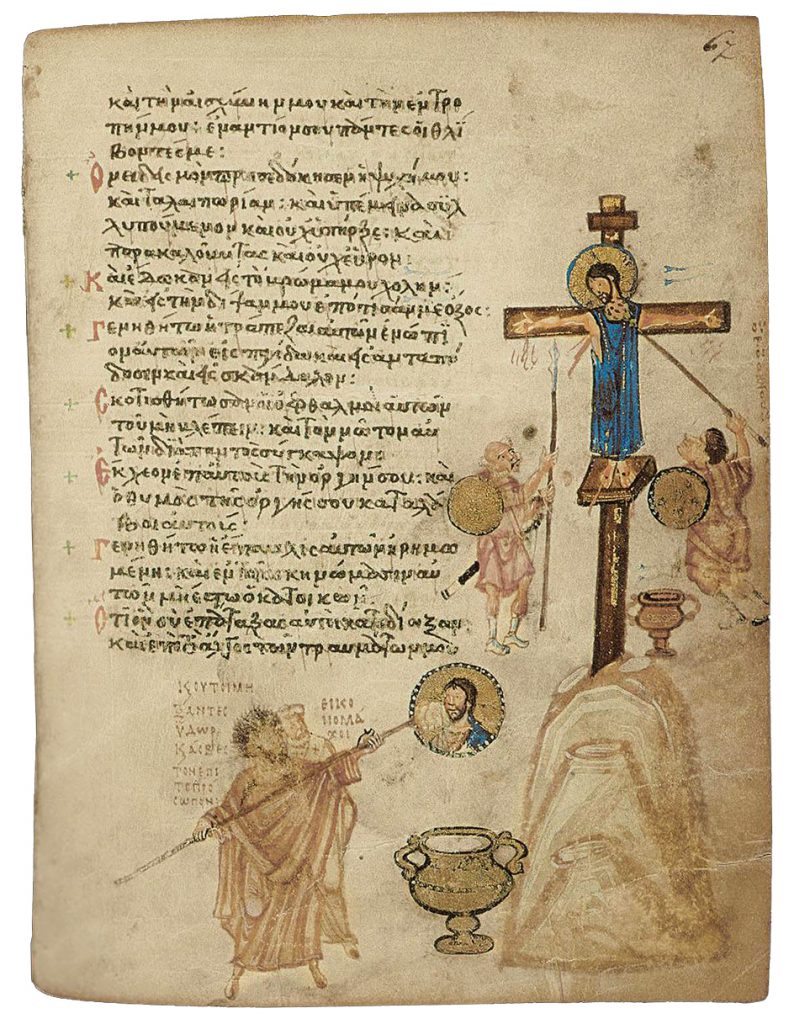 67
καὶ τὴν αἰσχύνην μου καὶ τὴν ἐντρο
πήν μου: ἐναντίον σου πάντες οἱ θλί
βοντές με:
+ Ὀνειδισμὸν προσεδόκησεν ἡ ψυχή μου:
καὶ ταλαιπωρίαν: καὶ ὑπέμεινα συλ
λυπούμενον καὶ οὐχ ὑπῆρξε: καὶ
παρακαλοῦντας καὶ οὐχ εὗρον:
+ Καὶ ἔδωκαν εἰς τὸ βρῶμά μου χολήν:
καὶ εἰς τὴν δίψαν μου ἐπότισάν με ὄξος:
+ Γενηθήτω ἡ τράπεζα αὐτῶν ἐνώπι
ον αὐτῶν εἰς παγίδα καὶ εἰς ἀνταπό
δοσιν καὶ εἰς σκάνδαλον:
+ Σκοτισθήτωσαν οἱ ὀφθαλμοὶ αὐτῶν
τοῦ μὴ βλέπειν: καὶ τὸν νῶτον αὐ
τῶν διὰ παντὸς σύγκαμψον
+ Ἔκχεον ἐπ αὐτοὺς τὴν ὀργήν σου: καὶ
ὁ θυμὸς τῆς ὀργῆς σου καταλά
βοι αὐτούς:
+ Γενηθήτω ἡ ἔπαυλις αὐτῶν ἠρημω
μένη: καὶ ἐν τοῖς σκηνώμασιν αὐ
τῶν μὴ ἔστω ὁ κατοικῶν:
+ Ὅτι ὃν σὺ ἐπάταξας αὐτοὶ κατεδίωξαν:
καὶ ἐπὶ τὸ ἄλγος τῶν τραυμάτων μου
ΥΔΩΡ
ΕΙΚΟ
ΝΟΜΑ
ΧΟΙ
ΤΟΝ ΕΠΙ
ΤΟ ΠΡΟ
ΣΩΠΟΝ